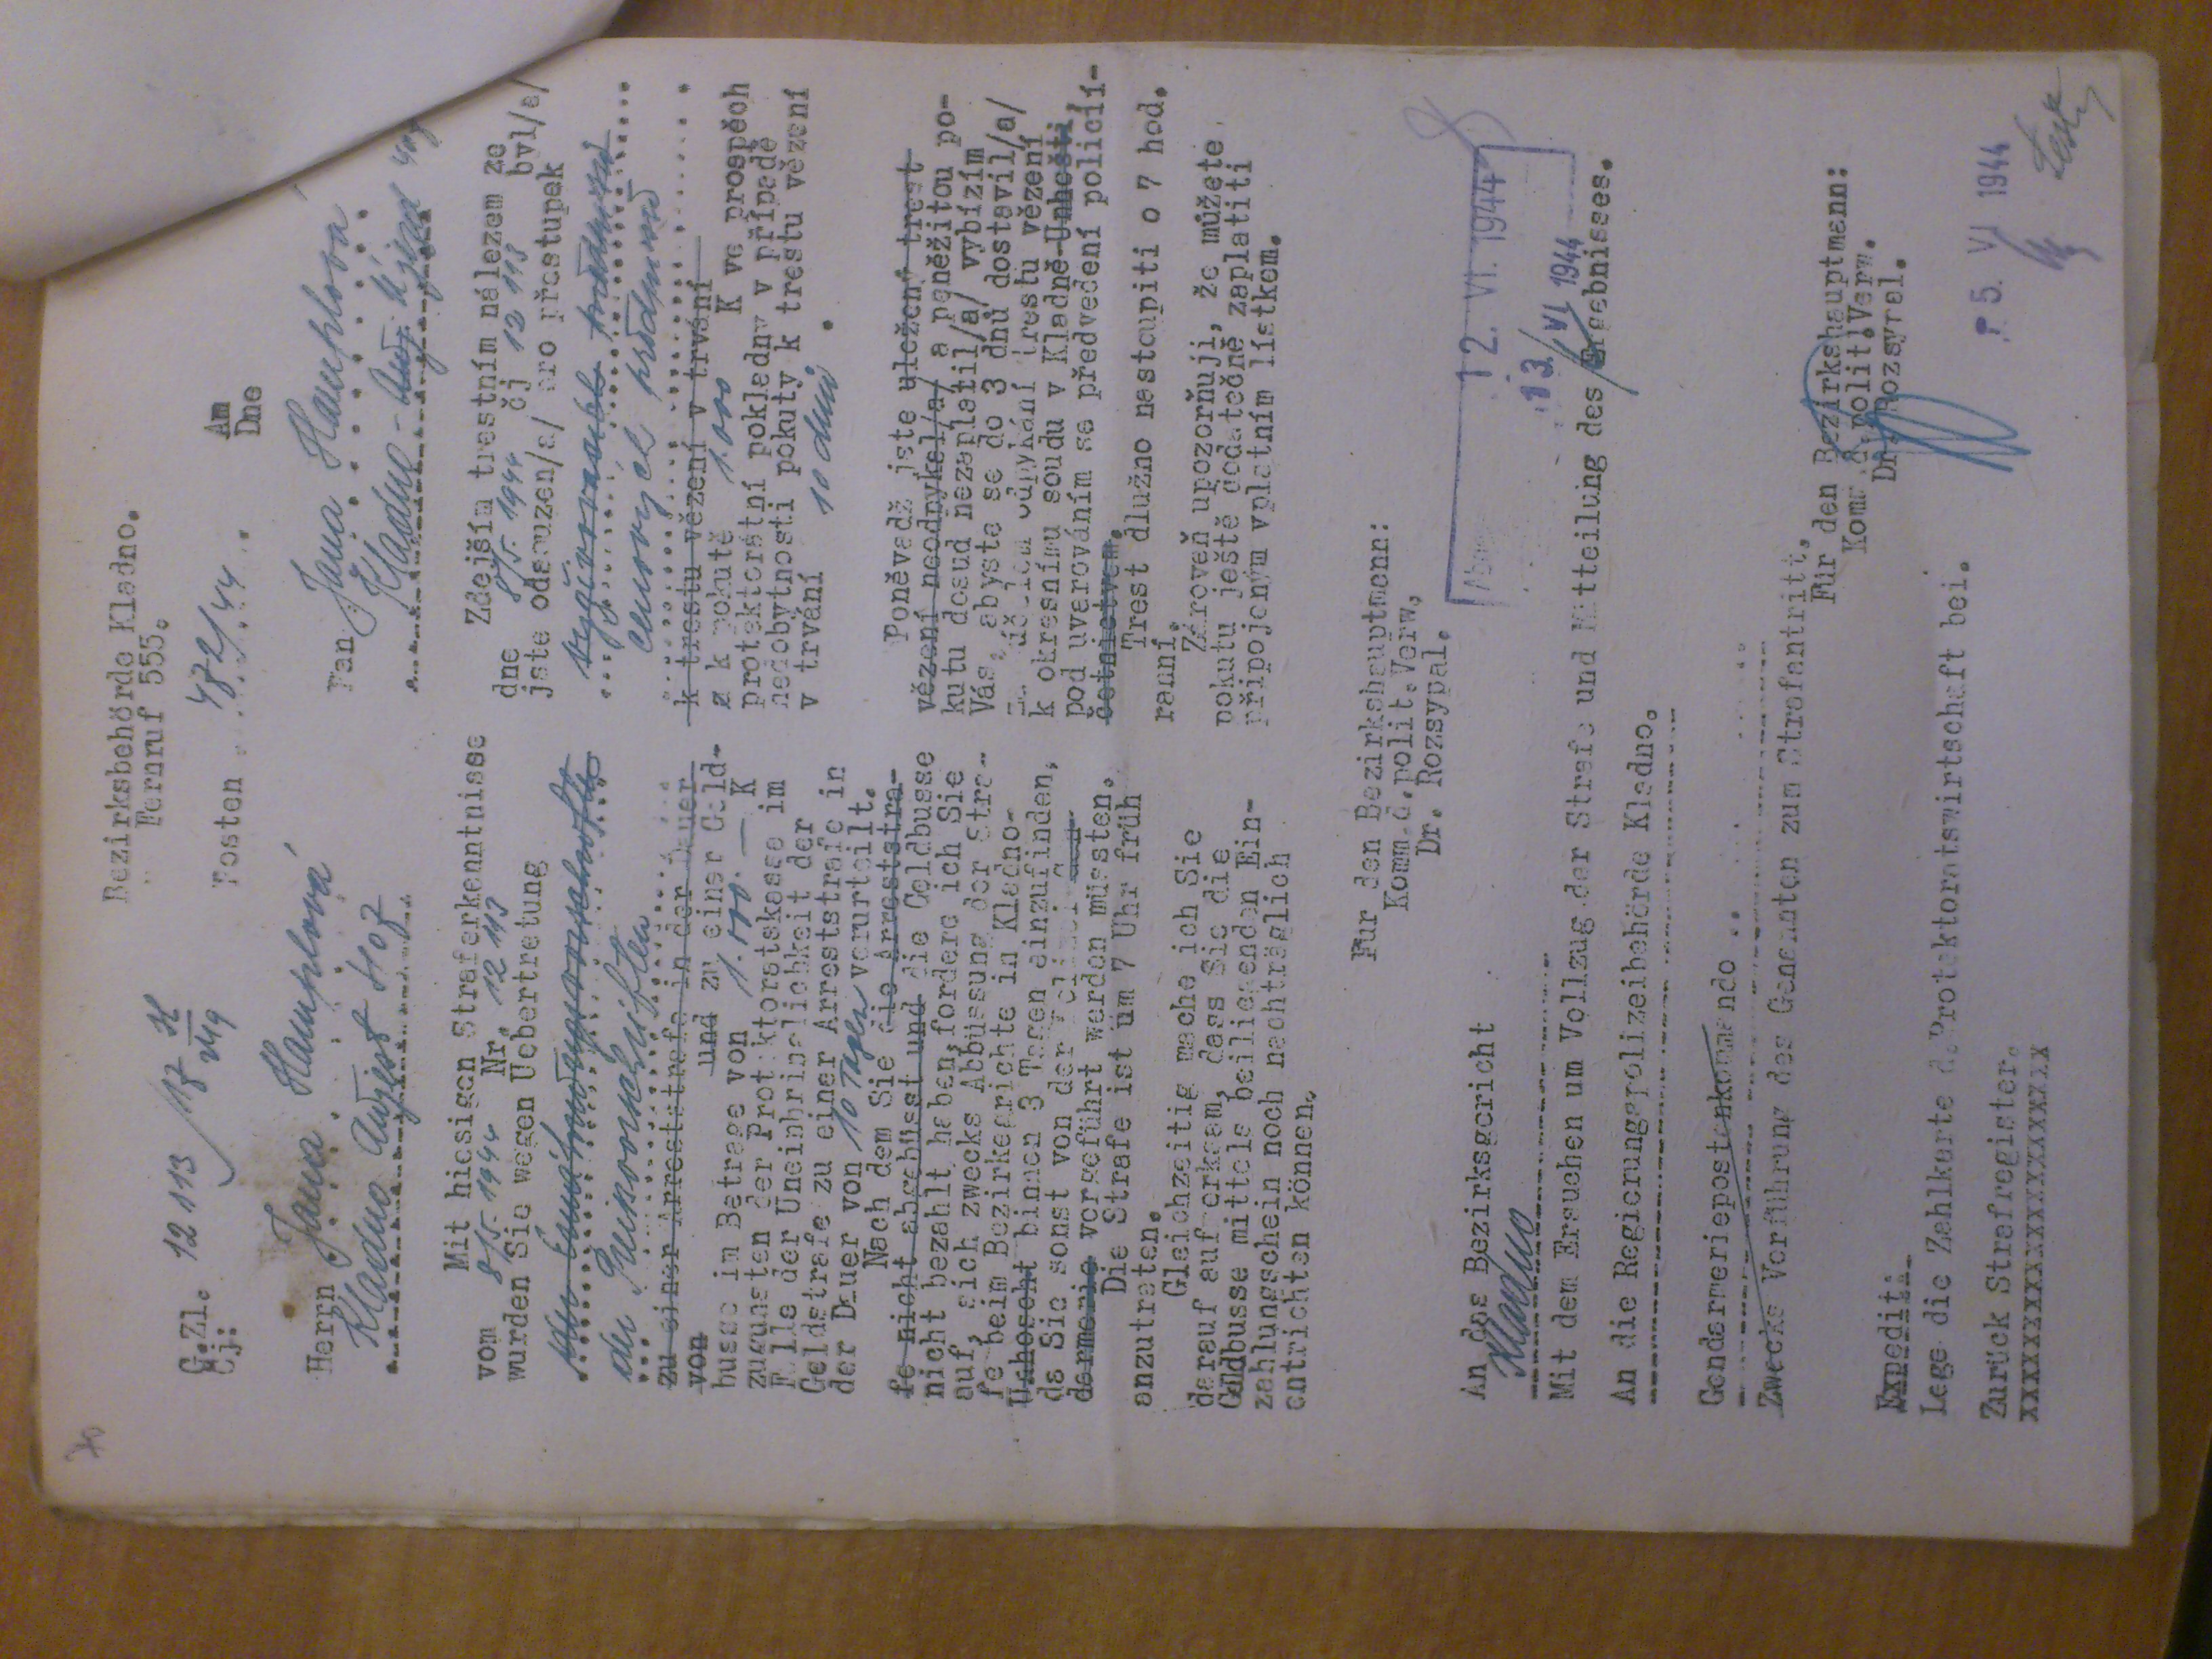 70
Bezirksbehörde Kladno.
Fernruf 555.
G.Zl. 12 113 /17 H
Čj: VIIg
Posten 472/44 .
Am
Dne
Herrn Jana Hamplová
Kladno Aujest 407
Mit hiesigen Straferkenntnisse
vom 8/5. 1944 Nr. 12 113
wurden Sie wegen Uebertretung
der Ernährungsvorschriften
der Preisvorschriften
zu einer Arreststrafe in der Dauer
von und zu einer Geld-
busse im Betrage von 1.000.— K
zugunsten der Protektoratskasse im
Falle der Uneinbringlichkeit der
Geldstrafe zu einer Arreststrafe in
der Dauer von 10 Tagen verurteilt.
Nach dem Sie die Arreststra-
fe nicht abgebüsst und die Geldbusse
nicht bezahlt haben, fordere ich Sie
auf, sich zwecks Abbüssung der Stra-
fe beim Bezirkegrichte in Kladno-
Unhoscht binnen 3 Tagen einzufinden,
da Sie sonst von der Polizei Gen-
darmerie vorgeführt werden müssten.
Die Strafe ist um 7 Uhr früh
anzutreten.
Gleichzeitig mache ich Sie
darauf aufmerksam, dass Sie die
Geldbusse mittels beiliegenden Ein-
zahlungschein noch nachträglich
entrichten können.
Pan Jana Hamplová
Kladno - Auj. Újezd 407
Zdejším trestním nálezem ze
dne 8/5. 1944 čj 12 113 byl/a/
jste odsouzen/a/ pro přestupek
vyživovacích předpisů
cenových předpisů
k trestu vězení v trvání
a k pokutě 1.000 K ve prospěch
protektorátní pokladny v případě
nedobytnosti pokuty k trestu vězení
v trvání 10 dnů .
Poněvadž jste uložený trest
vězení neodpykal/a/ a peněžitou po-
kutu dosud nezaplatil/a/ vybízím
Vás, abyste se do 3 dnů dostavil/a/
za účelem odpykání trestu vězení
k okresnímu soudu v Kladně-Unhošti,
pod uvarováním se předvedení policií-
četnictvem.
Trest dlužno nastoupiti o 7 hod.
ranní.
Zároveň upozorňuji, že můžete
pokutu ještě dodatečně zaplatiti
připojeným vplatním lístkem.
Für den Bezirkshauptmann:
Komm.d.polit.Verw.
Dr. Rozsypal.
12. VI. 1944
13. VI 1944
An das Bezirksgericht
Kladno
Mit dem Ersuchen um Vollzug der Strafe und Mitteilung des Ergebnisses.
An die Regierungspolizeibehörde Kladno.
Gendarmeriepostenkommando ..
Zwecks Vorführung des Genannten zum Strafantritt.
Für den Bezirkshauptmann:
Komm.d.polit.Verw.
Dr. Rozsypal.
Expedit:
Lege die Zahlkarte d.Protektoratswirtschaft bei.
Zurück Strafregister.
xxxxxxxxxxxxxxxxxxxxx
5. VI 1944